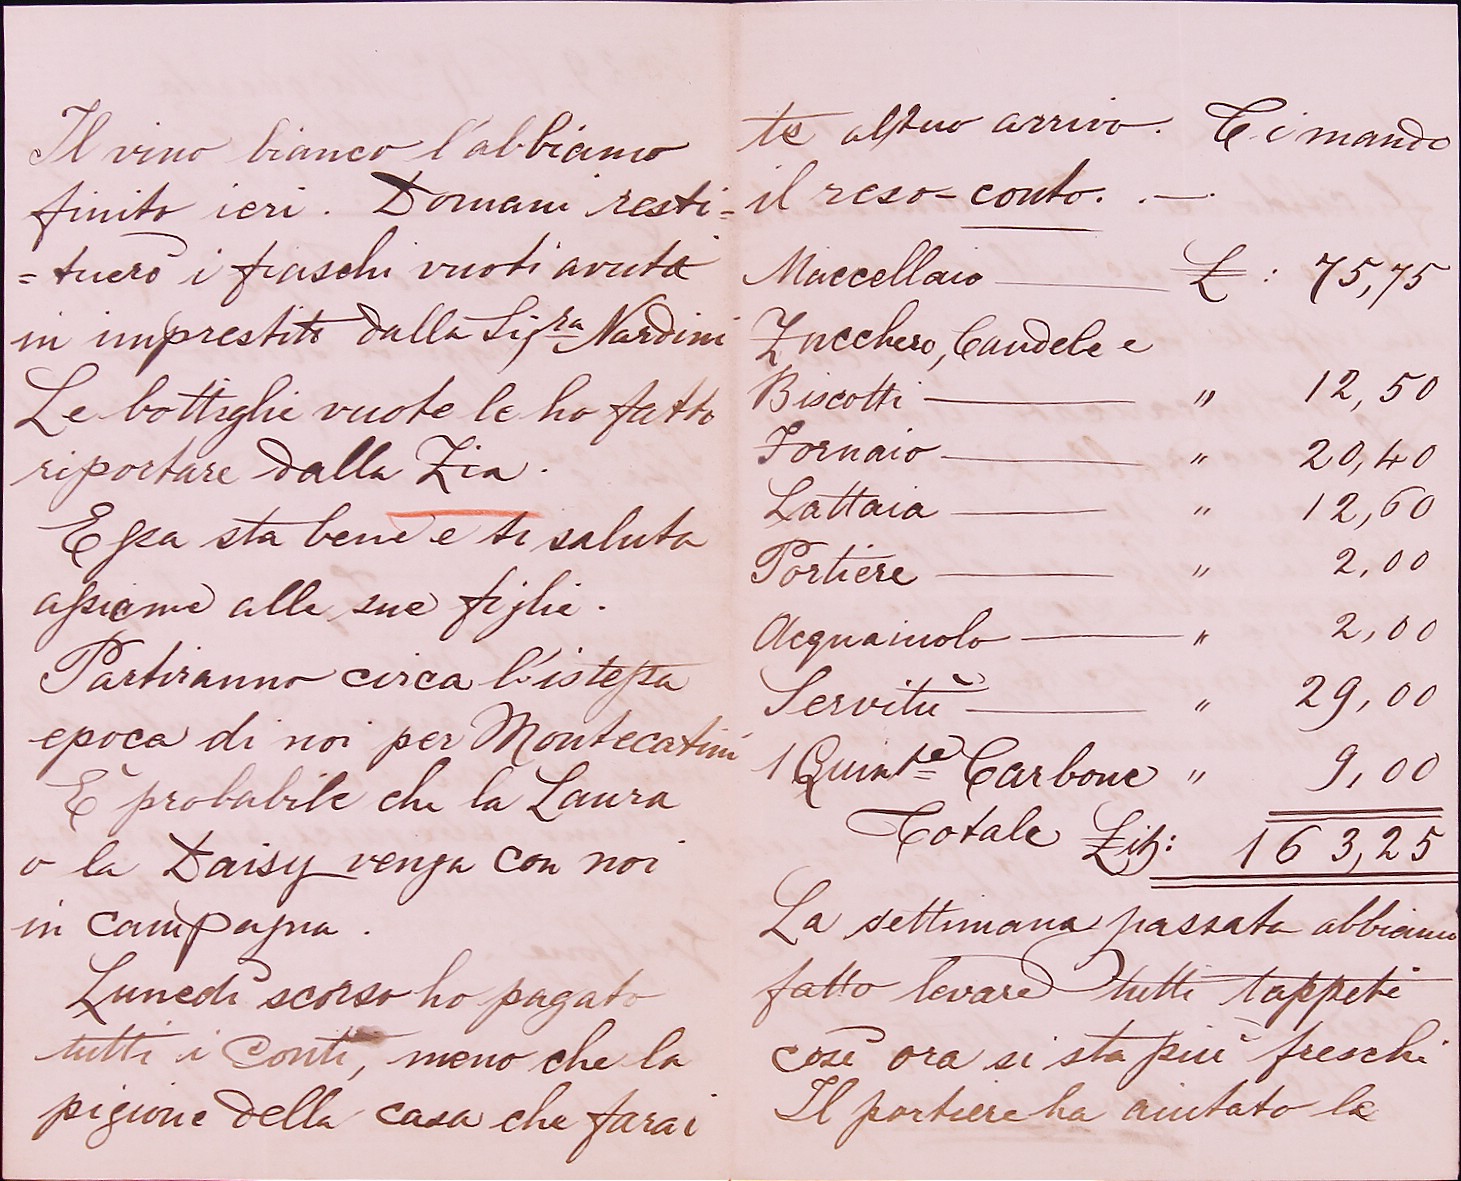 Il vino bianco l'abbiamo
finito ieri. Domani resti=
=tuerò i fiaschi vuoti avuti
in imprestito dalla Sigra Nardini
Le bottiglie vuote le ho fatto
riportare dalla Zia.
Essa sta bene e ti saluta
assieme alle sue figlie.
Partiranno circa l'istessa
epoca di noi per Montecatini
È probabile che la Laura
o la Daisy venga con noi
in campagna.
Lunedì scorso ho pagato
tutti i Conti, meno che la
pigione della casa che farai
te al tuo arrivo. Ti mando
il reso-conto. . —.
Maccellaio £ : 75,75
Zucchero, Candele e
Biscotti " 12,50
Fornaio " 20,40
Lattaia " 12,60
Portiere " 2,00
Acquaiuolo " 2,00
Servitù " 29,00
1 Quinle Carbone " 9,00
Totale Lit: 163,25
La settimana passata abbiamo
fatto levare tutti tappeti
così ora si sta più freschi
Il portiere ha aiutato le